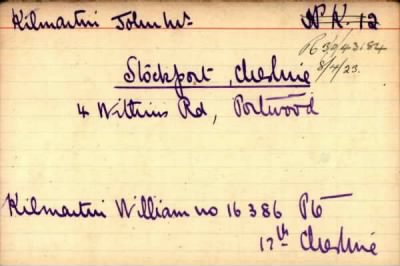 Kilmartin John Mr N.K. 12
R 39/43184
8/4/23.
Stockport, Cheshire
4 Withins Rd, Portwood
Kilmartin William no 16386 Pte
17th Cheshire